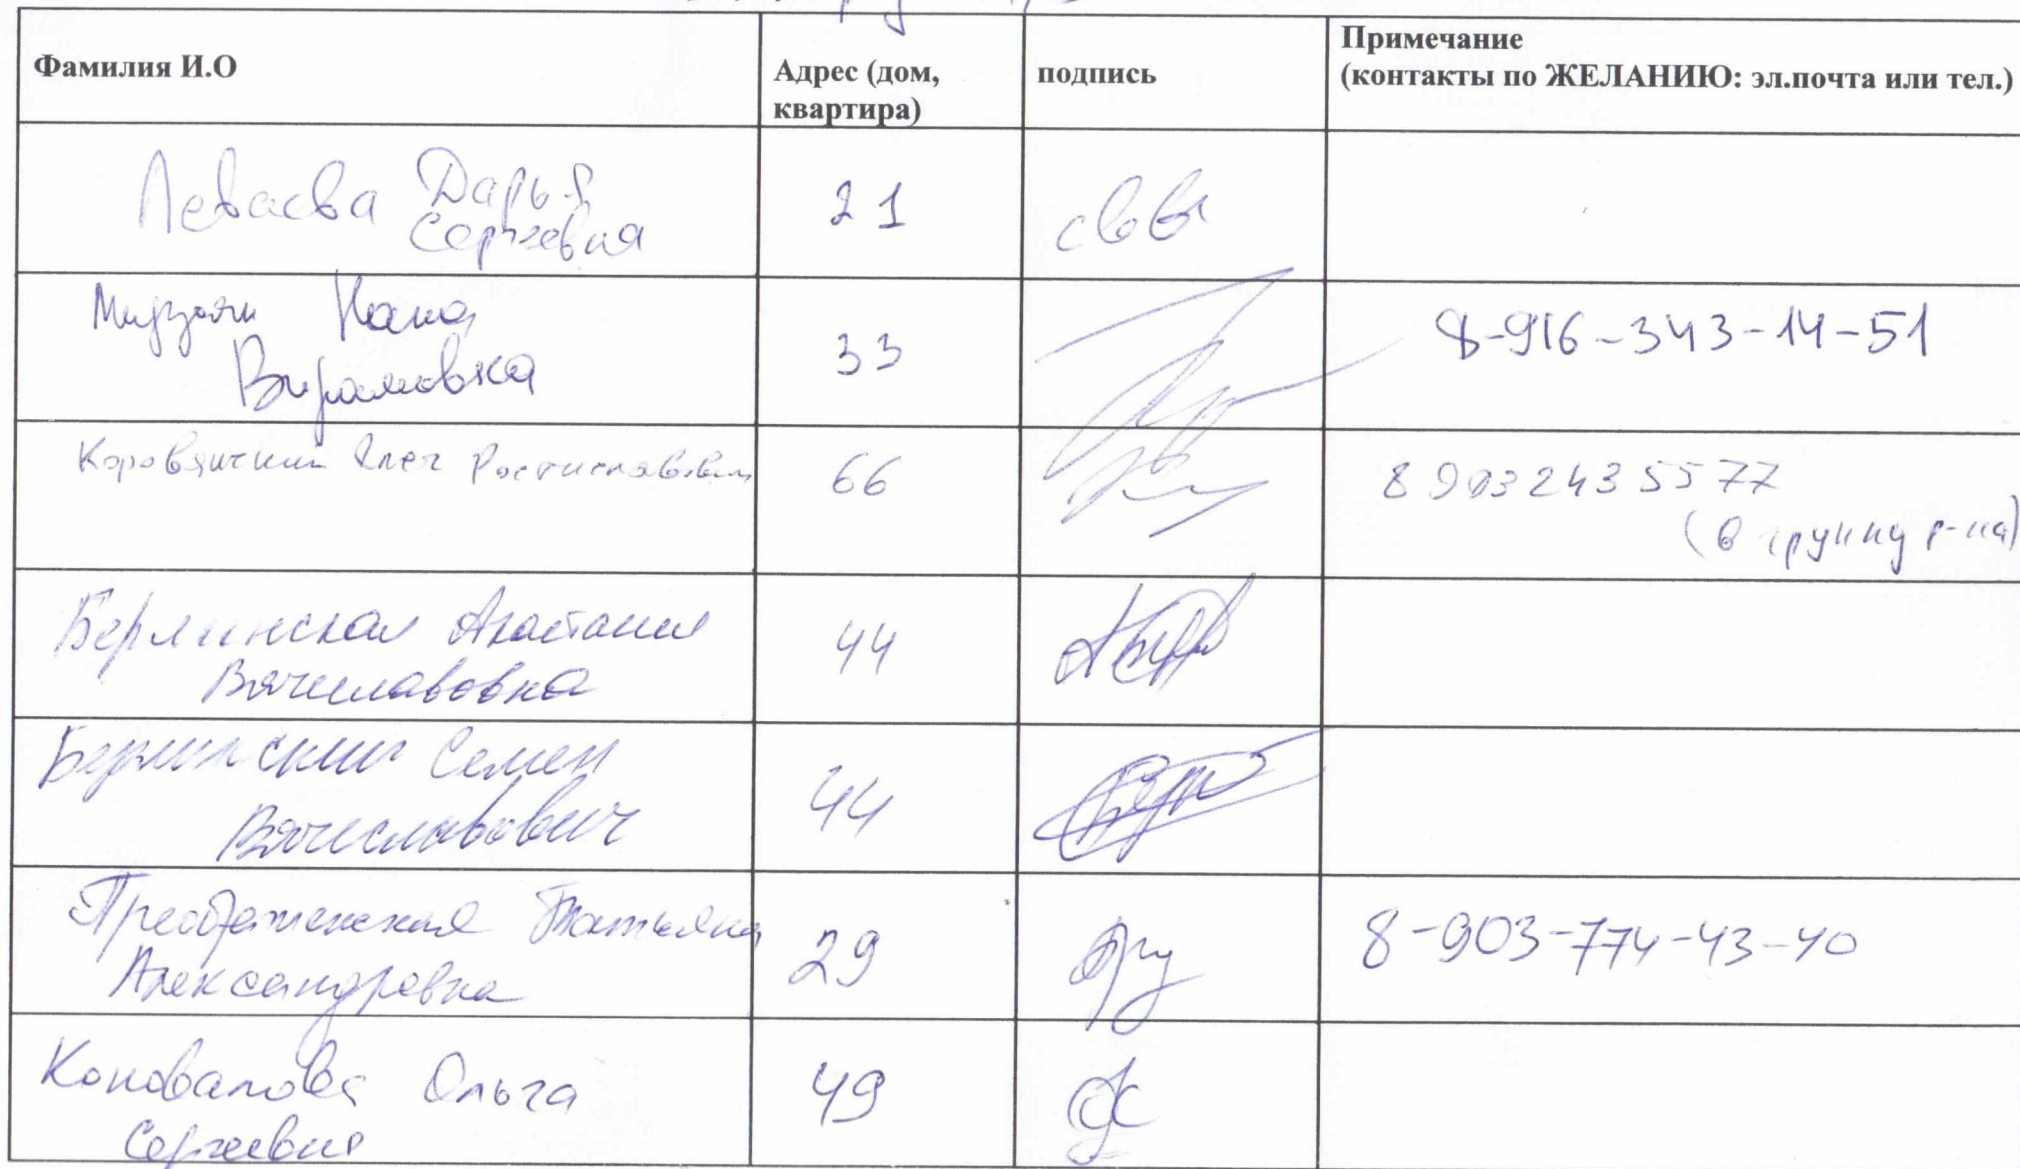 Фамилия И.О
Адрес (дом,
квартира)
подпись
Примечание
(контакты по ЖЕЛАНИЮ: эл.почта или тел.)
Леваева Дарья
Сергеевна
21
Мирзоян Нана
33
8-916-343-14-51
Олег Ростиславович
66
8 903 243 55 77
(в группу р-на)
Берлинская Анастасия
Вячеславовна
44
Берлинский Семен
Вячеславович
44
Преображенская Татьяна
Александровна
29
8-903-774-43-40
Коновалова Ольга
Сергеевна
49